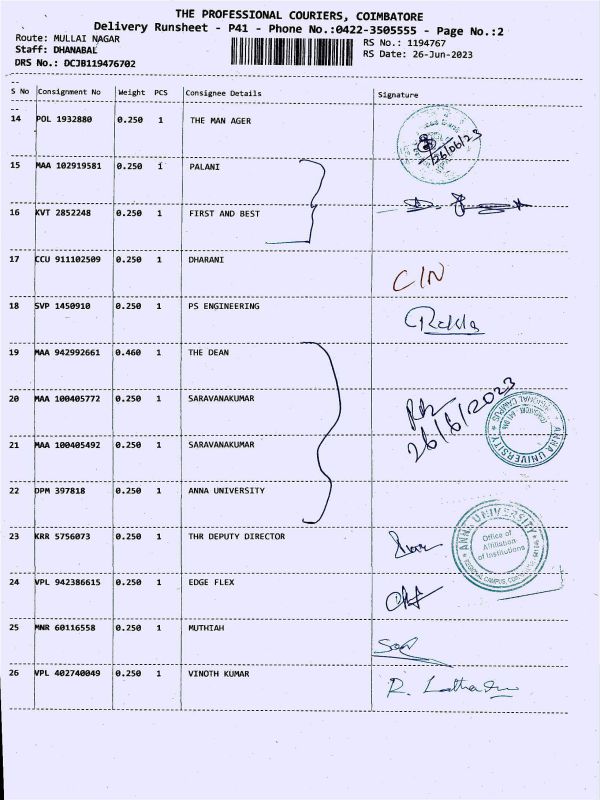 THE PROFESSIONAL COURIERS, COIMBATORE
Delivery Runsheet - P41 - Phone No.:0422-3505555 - Page No.:2
Route: MULLAI NAGAR RS No.: 1194767
Staff: DHANABAL RS Date: 26-Jun-2023
DRS No.: DCJB119476702
S No Consignment No Weight PCS Consignee Details Signature
14 POL 1932880 0.250 1 THE MAN AGER
26/06/23
15 MAA 102919581 0.250 1 PALANI
16 KVT 2852248 0.250 1 FIRST AND BEST
17 CCU 911102509 0.250 1 DHARANI
CIN
18 SVP 1450910 0.250 1 PS ENGINEERING
Rekha
19 MAA 942992661 0.460 1 THE DEAN
20 MAA 100405772 0.250 1 SARAVANAKUMAR
26/6/2023
ANNA UNIVERSITY
REGIONAL CAMPUS
21 MAA 100405492 0.250 1 SARAVANAKUMAR
22 DPM 397818 0.250 1 ANNA UNIVERSITY
23 KRR 5756073 0.250 1 THR DEPUTY DIRECTOR
ANNA UNIVERSITY
Office of
Affiliation
of Institutions
REGIONAL CAMPUS,
24 VPL 942386615 0.250 1 EDGE FLEX
25 MNR 60116558 0.250 1 MUTHIAH
26 VPL 402740049 0.250 1 VINOTH KUMAR